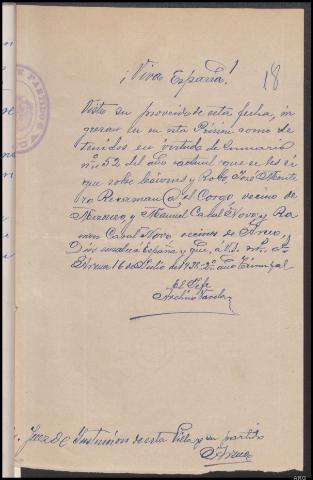 ¡Viva España!
18
Visto su proveído de esta fecha, in
gresan en en esta Prisión como de
tenidos en virtud de Sumario
nº 52 del año actual que se les si
gue sobre lesiones y Robo, José Monte
ro (a) el Corgo, vecino de
y Manuel Canal Novo y Ra
mon Canal Novo vecinos de Arzua,
Dios salve a España y que, a Vd. ms. as.
Arzua 16 de Julio de 1938. 2º año Triunfal
El Jefe
Avelino Varela
Juez De Instruccion de esta Villa y su partido
Arzua
ARG